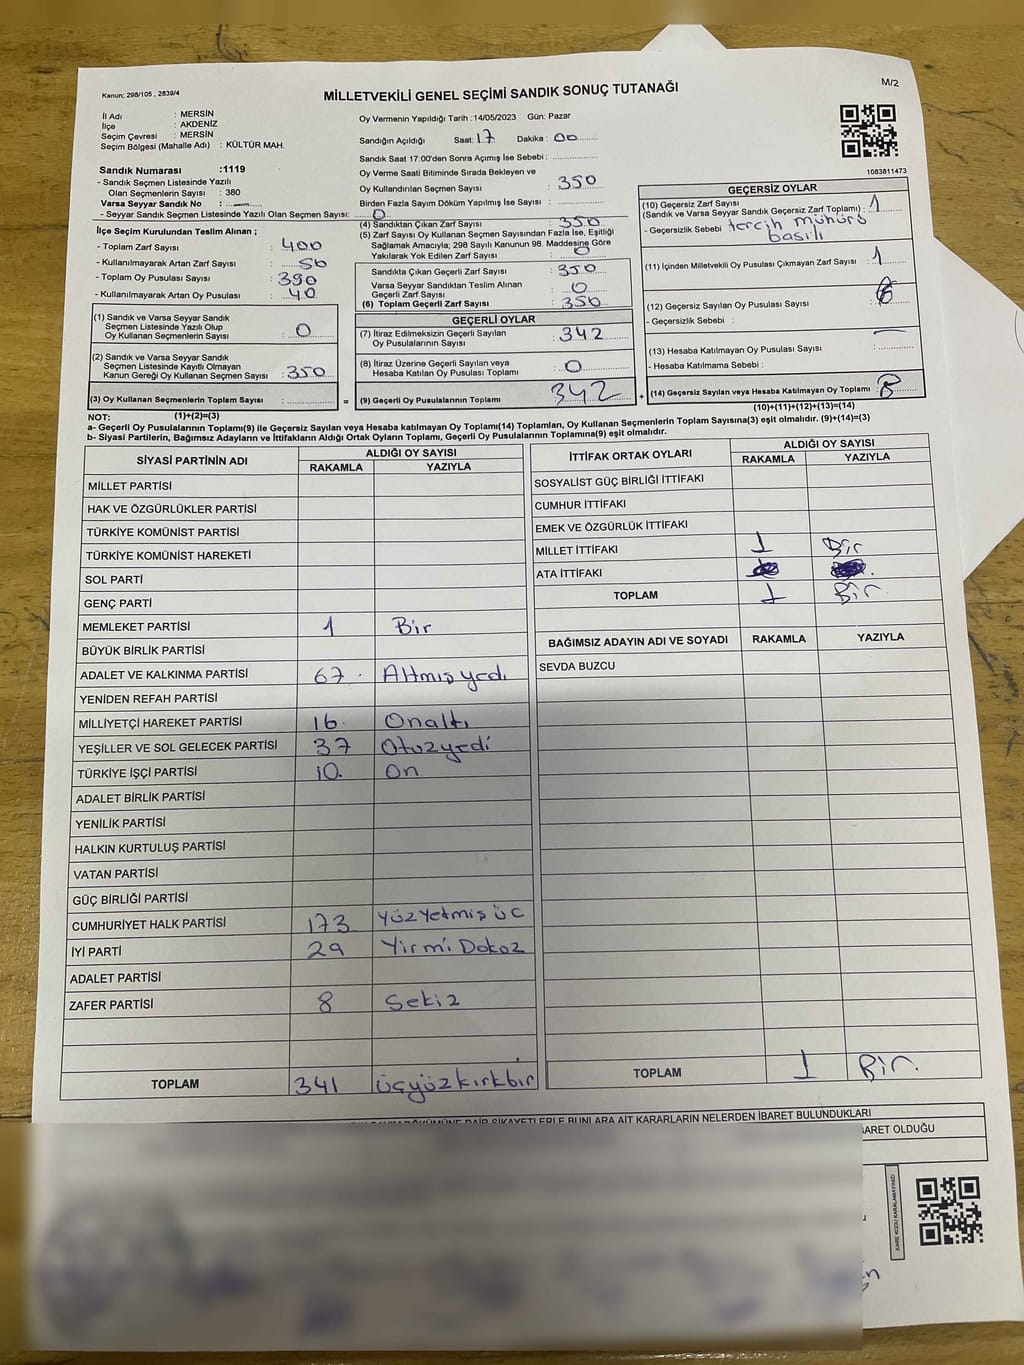 Kanun; 298/105 , 2839/4
MİLLETVEKİLİ GENEL SEÇİMİ SANDIK SONUÇ TUTANAĞI
M/2
İl Adı : MERSİN
İlçe : AKDENİZ
Seçim Çevresi : MERSİN
Seçim Bölgesi (Mahalle Adı) : KÜLTÜR MAH.
Sandık Numarası :1119
- Sandık Seçmen Listesinde Yazılı
Olan Seçmenlerin Sayısı : 380
Varsa Seyyar Sandık No :
- Seyyar Sandık Seçmen Listesinde Yazılı Olan Seçmen Sayısı: 0
İlçe Seçim Kurulundan Teslim Alınan ;
- Toplam Zarf Sayısı : 400
- Kullanılmayarak Artan Zarf Sayısı : 50
- Toplam Oy Pusulası Sayısı : 390
- Kullanılmayarak Artan Oy Pusulası : 40
(1) Sandık ve Varsa Seyyar Sandık
Seçmen Listesinde Yazılı Olup
Oy Kullanan Seçmenlerin Sayısı : 0
(2) Sandık ve Varsa Seyyar Sandık
Seçmen Listesinde Kayıtlı Olmayan
Kanun Gereği Oy Kullanan Seçmen Sayısı : 350
(3) Oy Kullanan Seçmenlerin Toplam Sayısı :
=
Oy Vermenin Yapıldığı Tarih :14/05/2023 Gün: Pazar
Sandığın Açıldığı Saat: 17 Dakika : 00
Sandık Saat 17:00'den Sonra Açımış İse Sebebi :
Oy Verme Saati Bitiminde Sırada Bekleyen ve
Oy Kullandırılan Seçmen Sayısı : 350
Birden Fazla Sayım Döküm Yapılmış İse Sayısı :
(4) Sandıktan Çıkan Zarf Sayısı : 350
(5) Zarf Sayısı Oy Kullanan Seçmen Sayısından Fazla İse, Eşitliği
Sağlamak Amacıyla; 298 Sayılı Kanunun 98. Maddesine Göre
Yakılarak Yok Edilen Zarf Sayısı : 0
Sandıkta Çıkan Geçerli Zarf Sayısı : 350
Varsa Seyyar Sandıktan Teslim Alınan
Geçerli Zarf Sayısı : 0
(6) Toplam Geçerli Zarf Sayısı : 350
GEÇERLİ OYLAR
(7) İtiraz Edilmeksizin Geçerli Sayılan
Oy Pusulalarının Sayısı : 342
(8) İtiraz Üzerine Geçerli Sayılan veya
Hesaba Katılan Oy Pusulası Toplamı : 0
(9) Geçerli Oy Pusulalarının Toplamı : 342
+
1083811473
GEÇERSİZ OYLAR
(10) Geçersiz Zarf Sayısı
(Sandık ve Varsa Seyyar Sandık Geçersiz Zarf Toplamı) : 1
- Geçersizlik Sebebi : tercih mühürü
basılı
(11) İçinden Milletvekili Oy Pusulası Çıkmayan Zarf Sayısı : 1
(12) Geçersiz Sayılan Oy Pusulası Sayısı :
- Geçersizlik Sebebi :
(13) Hesaba Katılmayan Oy Pusulası Sayısı :
- Hesaba Katılmama Sebebi :
(14) Geçersiz Sayılan veya Hesaba Katılmayan Oy Toplamı : 8
NOT: (1)+(2)=(3)
(10)+(11)+(12)+(13)=(14)
a- Geçerli Oy Pusulalarının Toplamı(9) ile Geçersiz Sayılan veya Hesaba katılmayan Oy Toplamı(14) Toplamları, Oy Kullanan Seçmenlerin Toplam Sayısına(3) eşit olmalıdır. (9)+(14)=(3)
b- Siyasi Partilerin, Bağımsız Adayların ve İttifakların Aldığı Ortak Oyların Toplamı, Geçerli Oy Pusulalarının Toplamına(9) eşit olmalıdır.
SİYASİ PARTİNİN ADI
ALDIĞI OY SAYISI
RAKAMLA YAZIYLA
MİLLET PARTİSİ
HAK VE ÖZGÜRLÜKLER PARTİSİ
TÜRKİYE KOMÜNİST PARTİSİ
TÜRKİYE KOMÜNİST HAREKETİ
SOL PARTİ
GENÇ PARTİ
MEMLEKET PARTİSİ 1 Bir
BÜYÜK BİRLİK PARTİSİ
ADALET VE KALKINMA PARTİSİ 67 Altmışyedi
YENİDEN REFAH PARTİSİ
MİLLİYETÇİ HAREKET PARTİSİ 16 Onaltı
YEŞİLLER VE SOL GELECEK PARTİSİ 37 Otuzyedi
TÜRKİYE İŞÇİ PARTİSİ 10. On
ADALET BİRLİK PARTİSİ
YENİLİK PARTİSİ
HALKIN KURTULUŞ PARTİSİ
VATAN PARTİSİ
GÜÇ BİRLİĞİ PARTİSİ
CUMHURİYET HALK PARTİSİ 173 Yüzyetmiş üc
İYİ PARTİ 29 Yirmi Dokoz
ADALET PARTİSİ
ZAFER PARTİSİ 8 Sekiz
TOPLAM 341 üçyüzkırkbir
İTTİFAK ORTAK OYLARI
ALDIĞI OY SAYISI
RAKAMLA YAZIYLA
SOSYALİST GÜÇ BİRLİĞİ İTTİFAKI
CUMHUR İTTİFAKI
EMEK VE ÖZGÜRLÜK İTTİFAKI
MİLLET İTTİFAKI 1 Bir
ATA İTTİFAKI
TOPLAM 1 Bir
BAĞIMSIZ ADAYIN ADI VE SOYADI RAKAMLA YAZIYLA
SEVDA BUZCU
TOPLAM 1 Bir.
DÖKÜMÜNE DAİR ŞİKAYETLERLE BUNLARA AİT KARARLARIN NELERDEN İBARET BULUNDUKLARI
BARET OLDUĞU